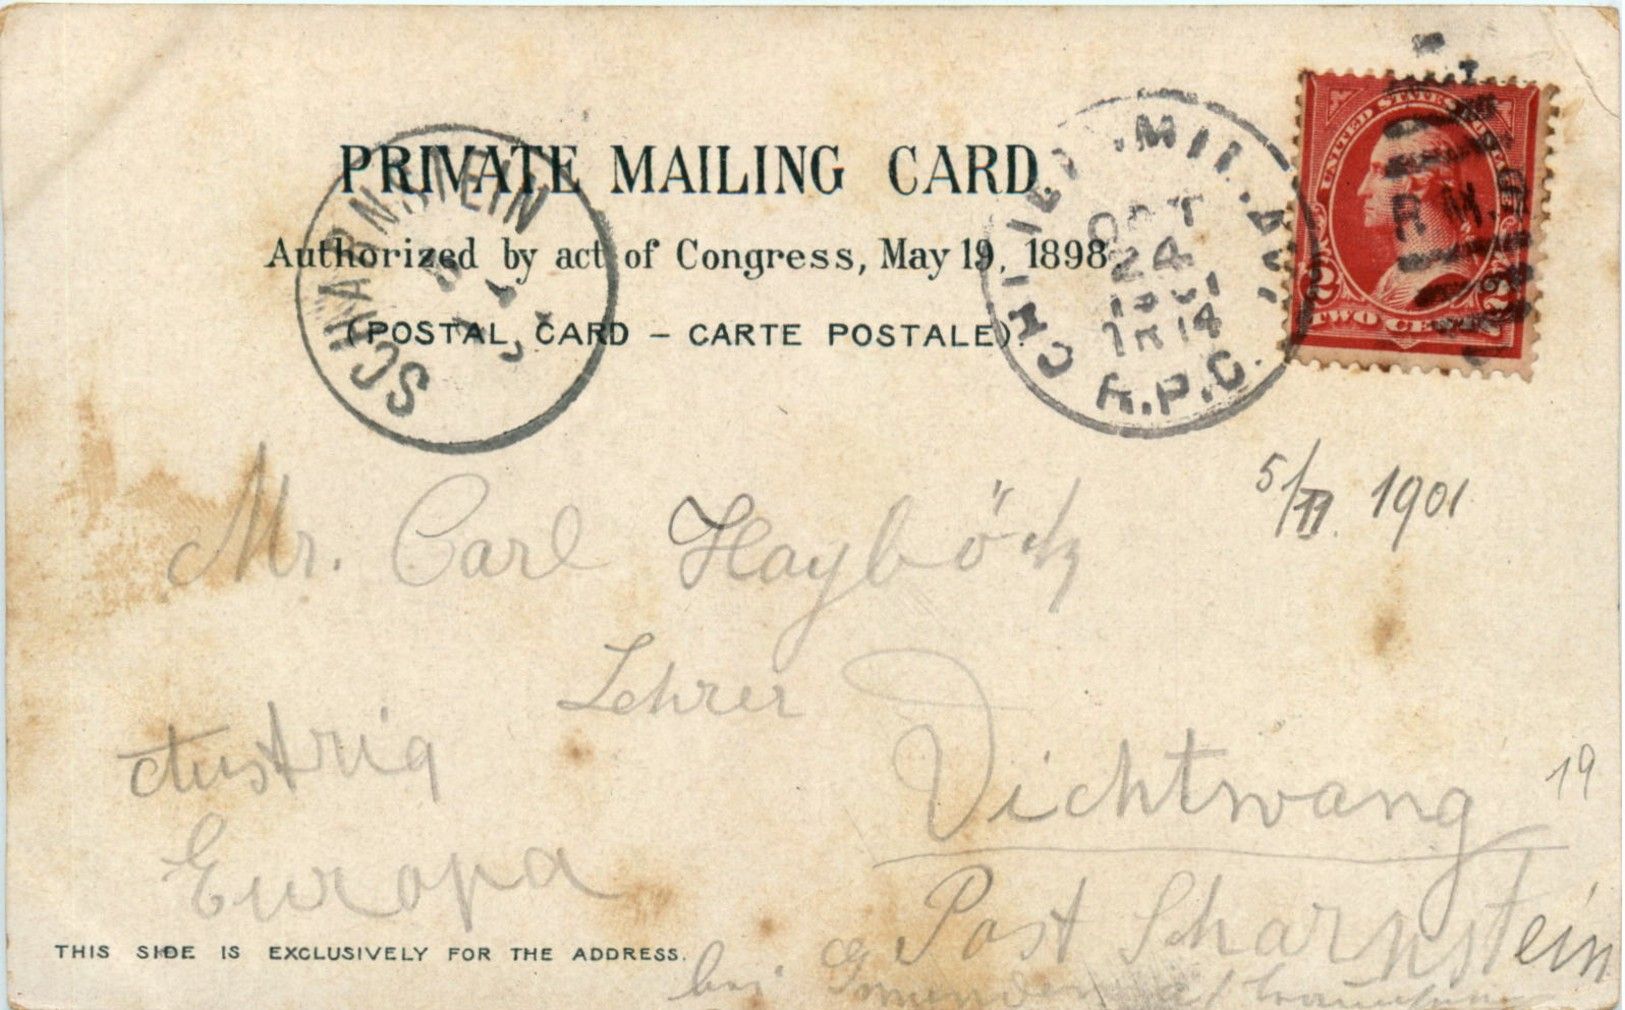 PRIVATE MAILING CARD.
Authorized by act of Congress, May 19, 1898.
(POSTAL CARD – CARTE POSTALE).
SCHARNSTEIN
OCT
24
R.P.O.
UNITED STATES POSTAGE
TWO CENTS
R.M.
5/11. 1901
Mr. Carl Hayböck
Lehrer
Austria
Vichtwang
19
Europa
Post Scharnstein
THIS SIDE IS EXCLUSIVELY FOR THE ADDRESS.
bei Gmunden